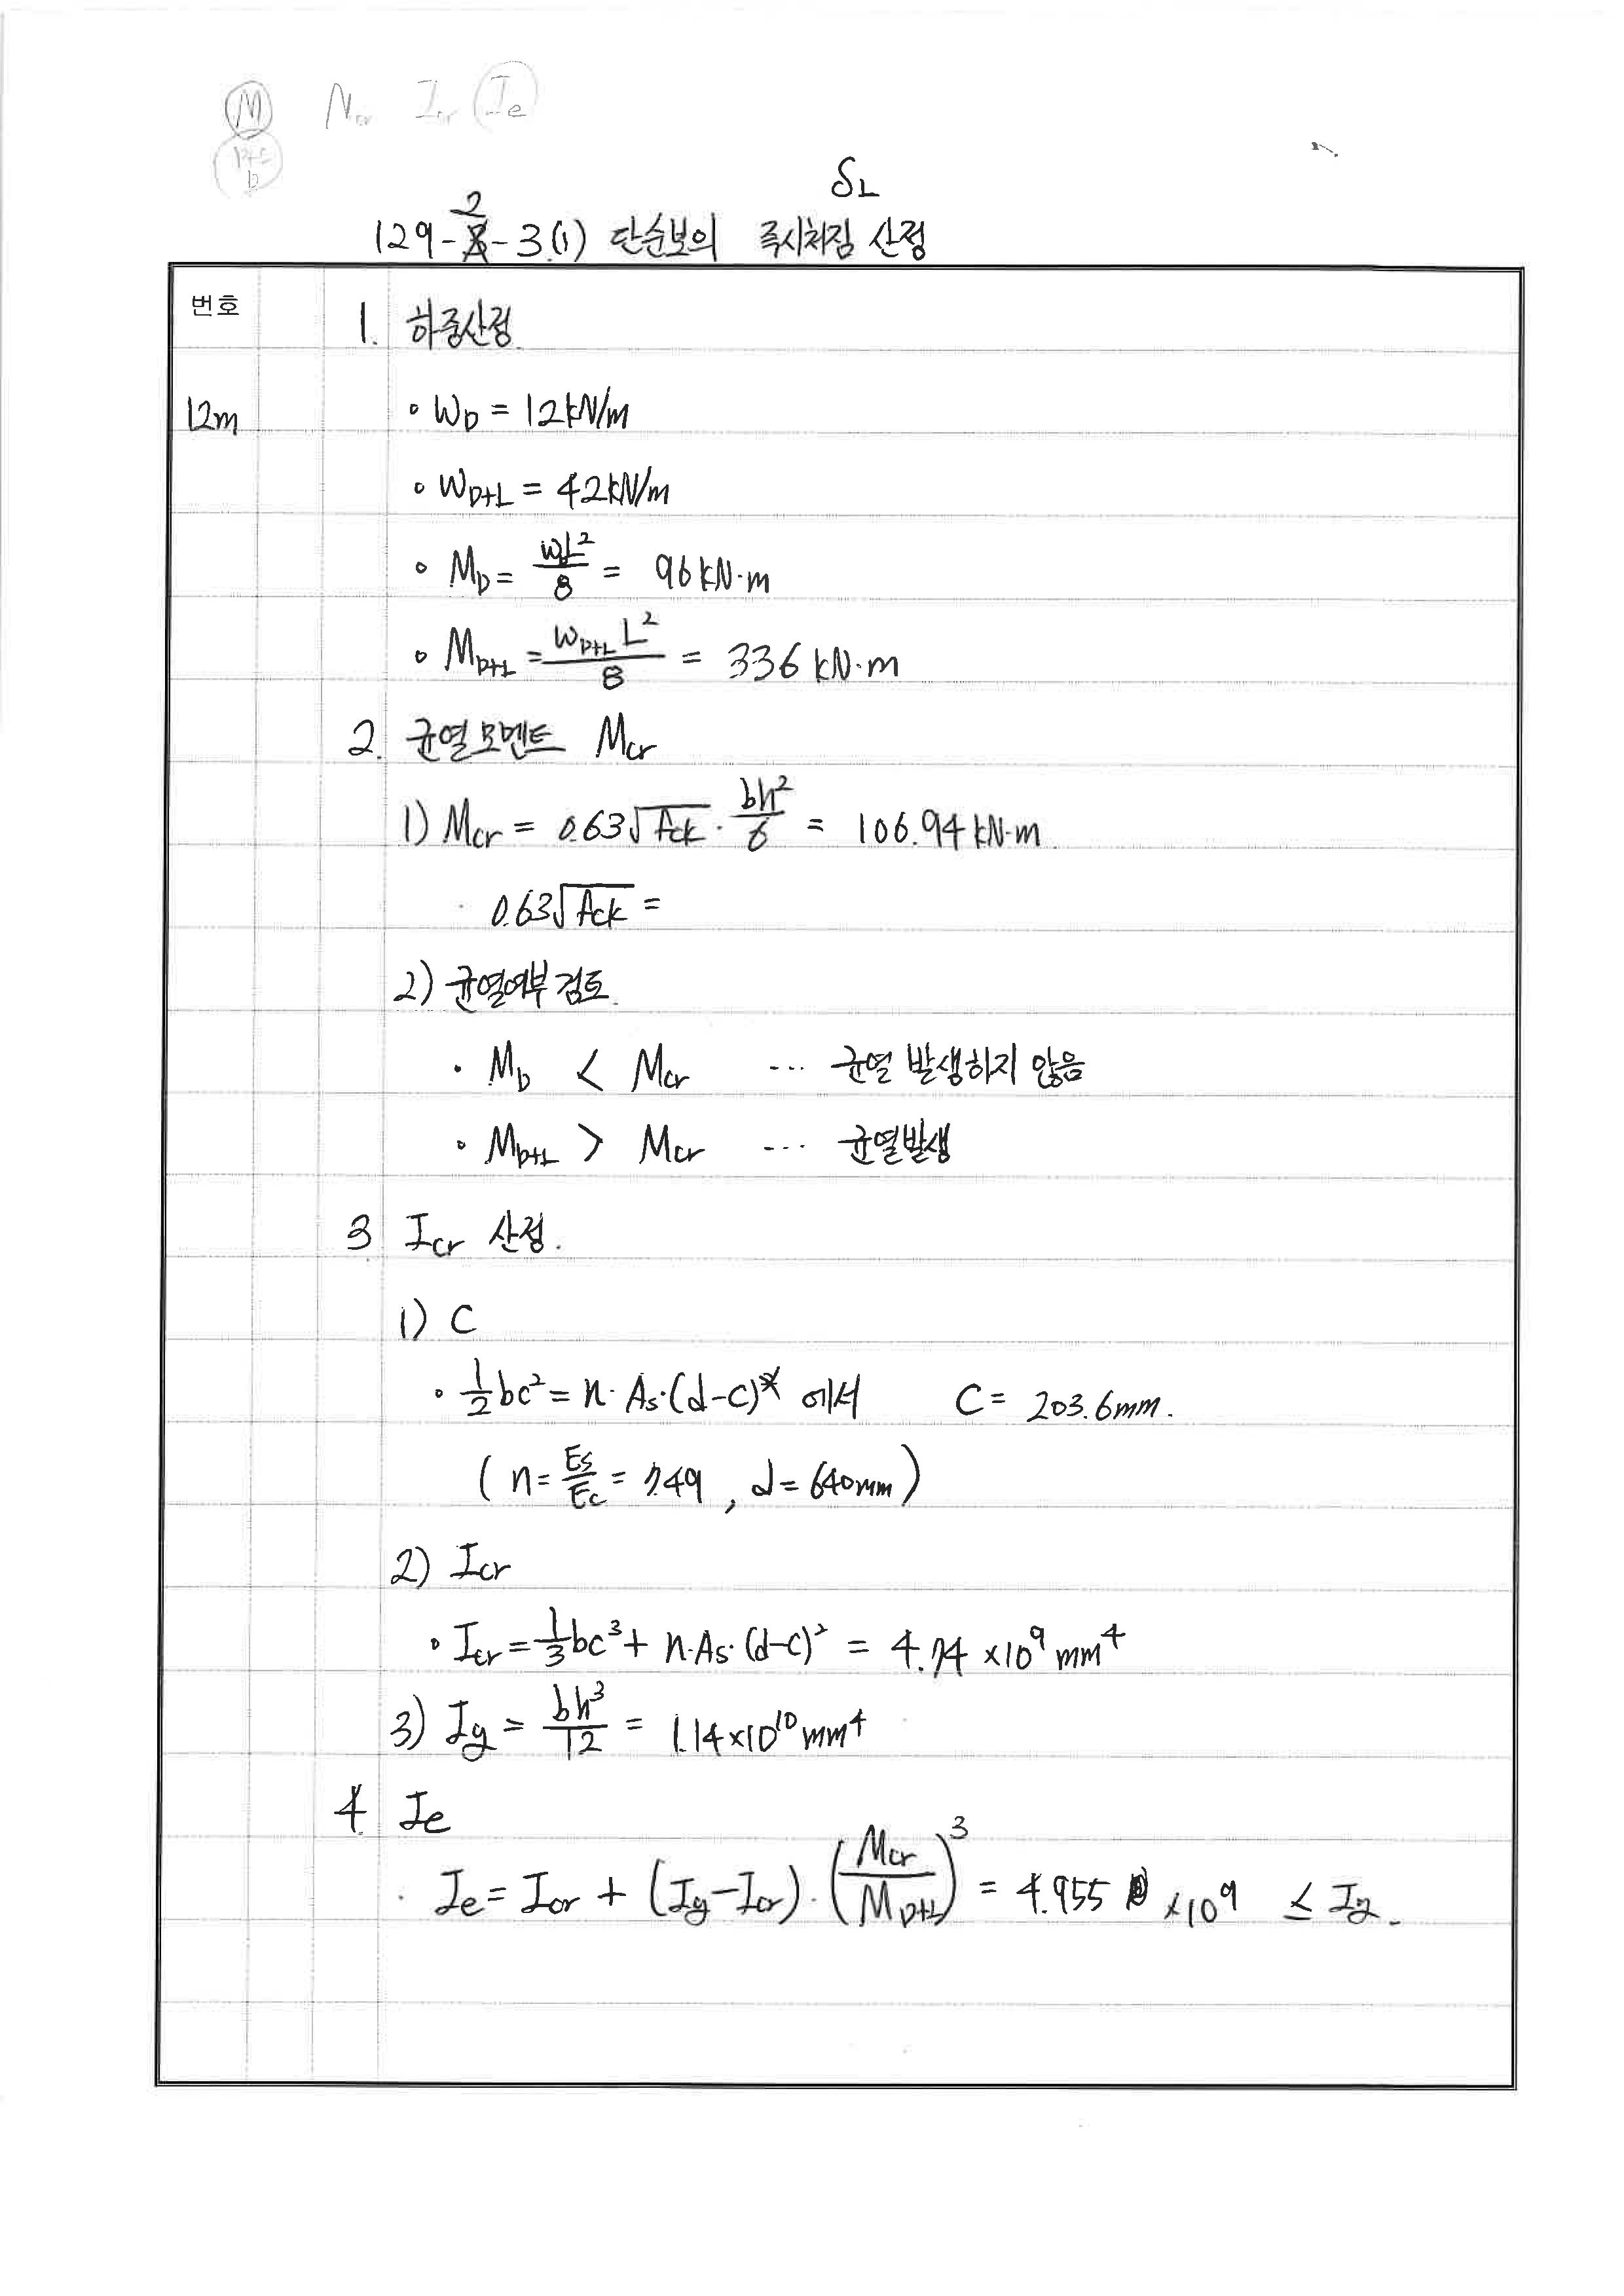 M Mcr Icr Ie
D+L
D
δL
129-2-3.(1) 단순보의 즉시처짐 산정
번호
1. 하중산정.
12m
• WD = 12kN/m
• WD+L = 42kN/m
• MD = wL²/8 = 96kN·m
• MD+L = WD+L L²/8 = 336kN·m
2. 균열모멘트 Mcr
1) Mcr = 0.63√fck · bh²/6 = 106.94kN·m.
· 0.63√fck =
2) 균열여부검토.
• MD < Mcr ··· 균열 발생하지 않음
• MD+L > Mcr ··· 균열발생
3. Icr 산정.
1) C
• 1/2bc² = n·As·(d-c) 에서 C = 203.6mm.
(n = Es/Ec = 7.49, d = 640mm)
2) Icr
• Icr = 1/3bc³ + n·As·(d-c)² = 4.74 ×10⁹ mm⁴
3) Ig = bh³/12 = 1.14×10¹⁰mm⁴
4. Ie
· Ie = Icr + (Ig-Icr)·(Mcr/MD+L)³ = 4.955 ×10⁹ ≤ Ig.